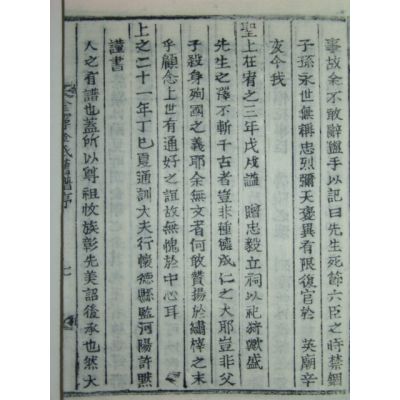 事故余不敢辭盥手以記曰先生死節六臣之時禁錮
子孫永世無稱忠烈彌天褒異有限復官於 英廟辛
亥今我
聖上在宥之三年戊戌謚 贈忠毅立祠以祀猗歟盛
先生之澤不斬千古者豈非種德成仁之大耶豈非父
子殺身殉國之義耶余無文者何敢贊揚於繡梓之末
乎顧念上世有通好之誼故無愧於中心耳
上之二十一年丁巳夏通訓大夫行懷德縣監河陽許
謹書
人之有譜也蓋所以尊祖收族彰先美詔後承也然大
氏舊譜序